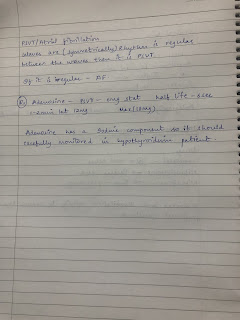 PSVT/Atrial fibrillation
waves are (symmetrically) Rhythm is regular
between the waves then it is PSVT.
If it is irregular - AF
Rx Adenosine - PSVT - 6mg stat half life - 5sec
1-2min lat 12mg Max (18mg)
Adenosine has a Iodine component so it should
carefully monitored in hypothyroidism patient.